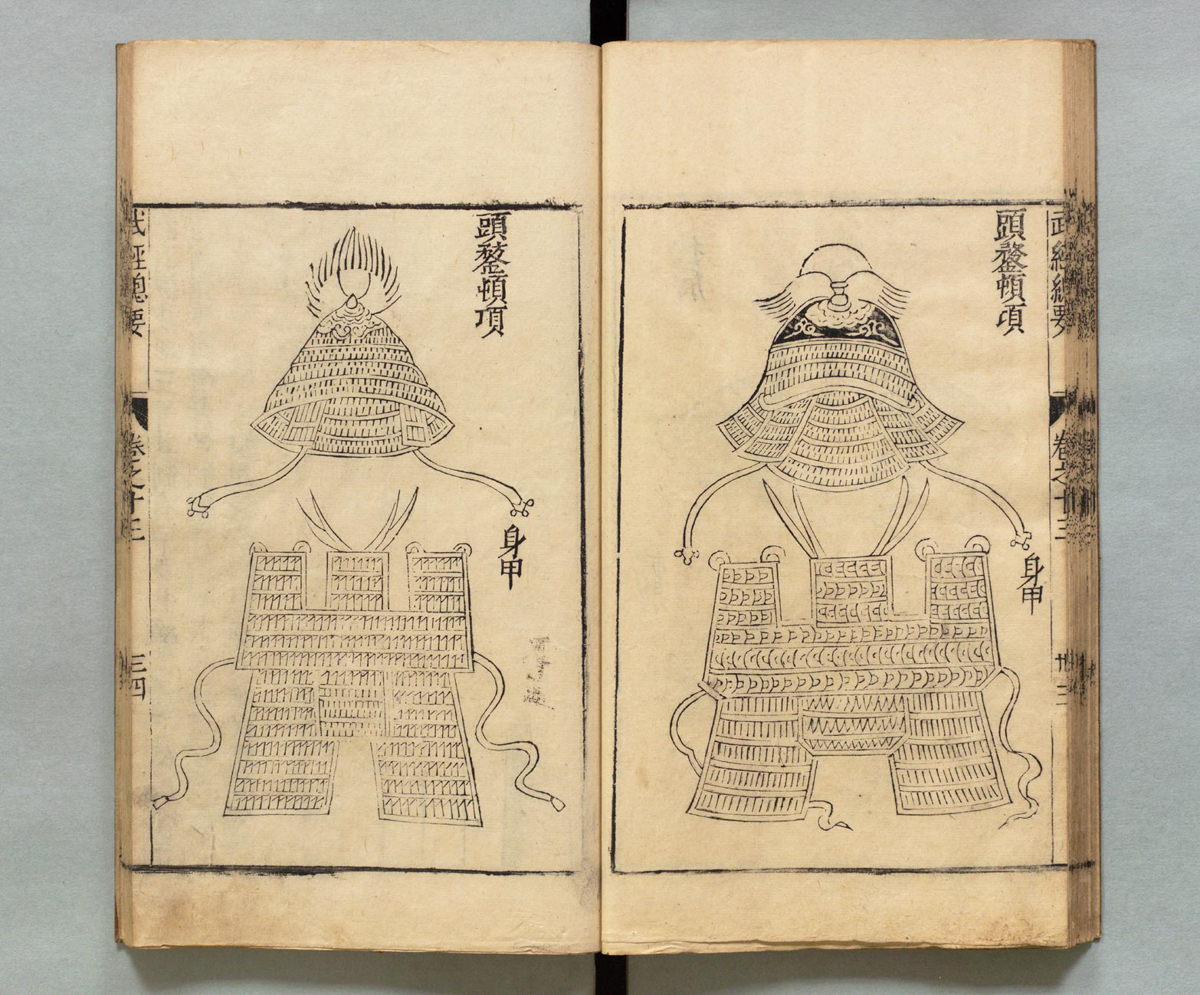 武經總要
卷之十三
卅三
頭鍪頓項
身甲
頭鍪頓項
身甲
武經總要
卷之十三
三四